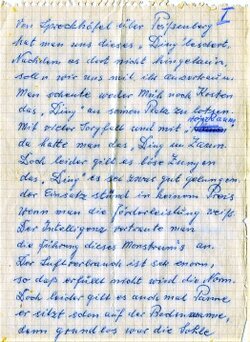 I
Von Sprockhövel über
hat man uns dieses „Ding" beschert.
Nachdem es dort nicht hingekam,
soll'n wir uns mit ihm
Man scheute weder Müh noch Kosten
das „Ding" an seinen Platz zu
Mit vieler Sorgfalt und mit
da hatte man das Ding im Zaum.
Doch leider gibt es böse Zungen
das „Ding" es sei zwar gut gelungen
der Einsatz stünd in keinem Preis
wenn man die Förderleistung weiß.
Der Intelligenz vertraute man
die Führung dieses Monstrums an.
Der Luftverbrauch ist sehr enorm,
so daß erfüllt nicht wird die Norm.
Doch leider gibt es auch mal Panne
er sitzt schon auf der
denn grundlos war die Sohle